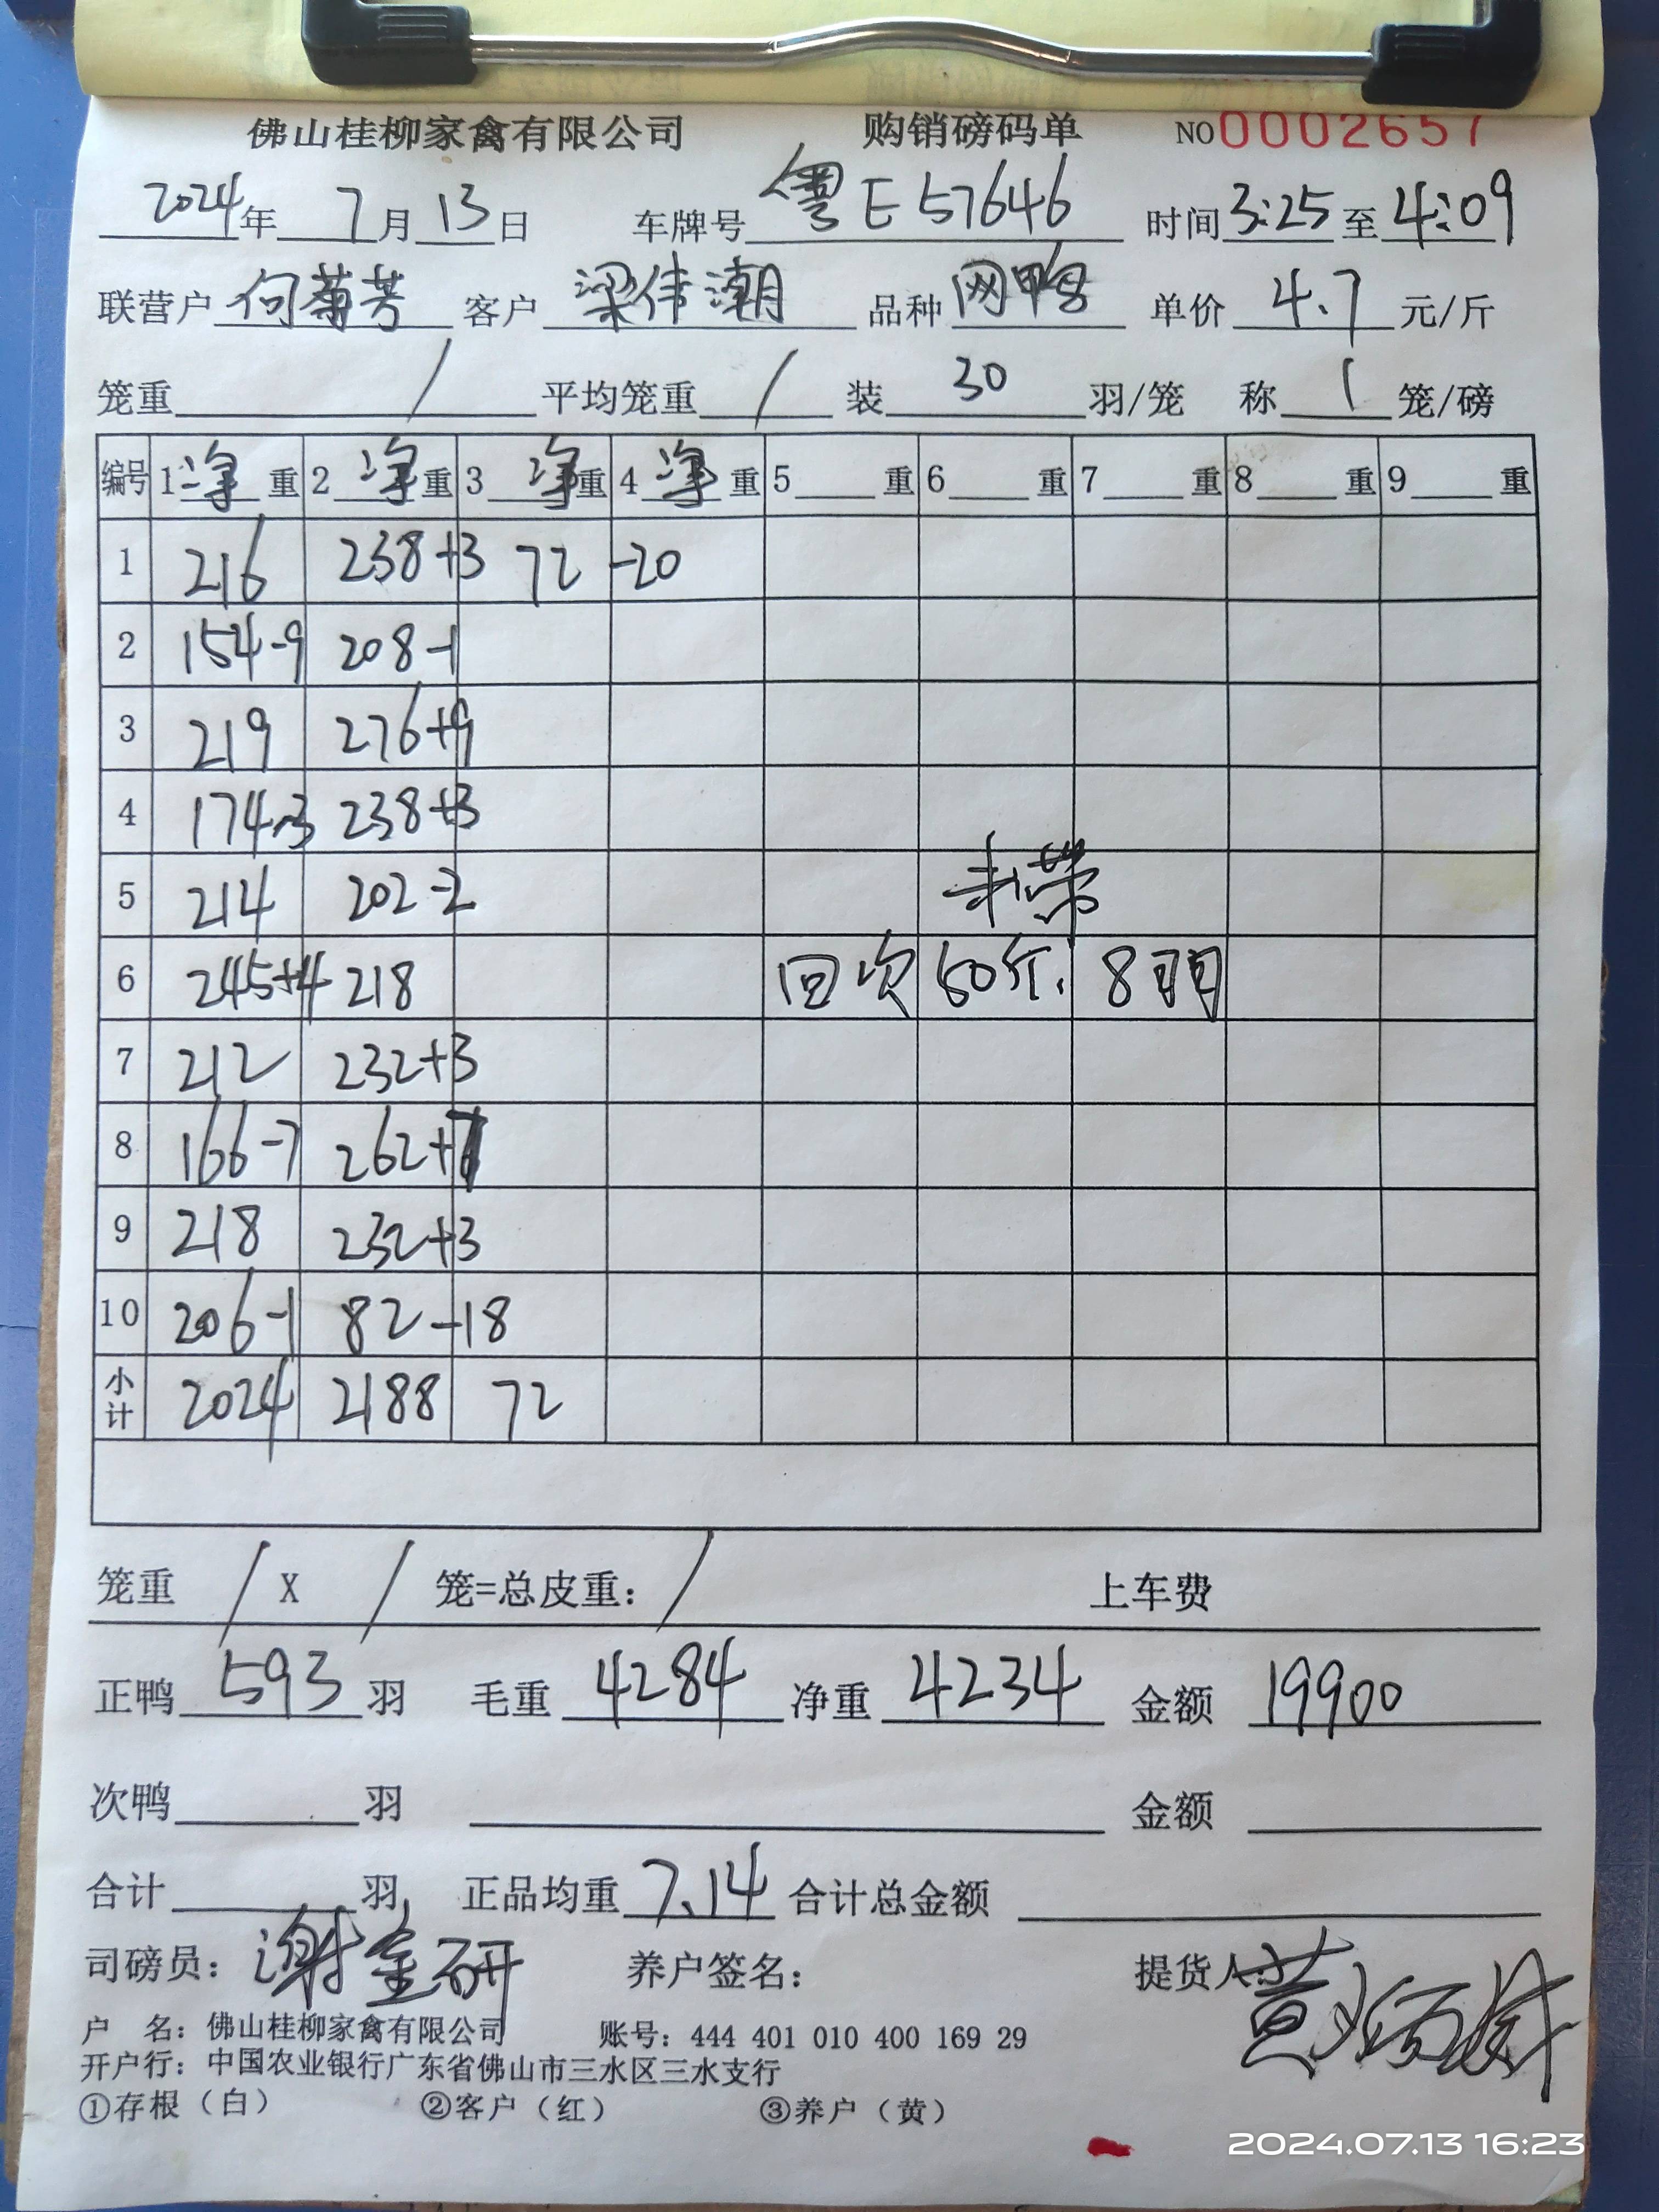 佛山桂柳家禽有限公司 购销磅码单 NO 0002657
2024年 7月13日 车牌号 粤E57646 时间 3:25 至 4:09
联营户 何菊芳 客户 梁伟潮 品种 网鸭 单价 4.7 元/斤
笼重 / 平均笼重 / 装 30 羽/笼 称 1 笼/磅
编号 1 净 重 2 净 重 3 净 重 4 净 重 5 重 6 重 7 重 8 重 9 重
1 216 238+3 72 -20
2 154-9 208-1
3 219 276+9
4 174-3 238+3
5 214 202-2
6 245+4 218 回次 50斤. 8羽
7 212 232+3
8 166-7 262+7
9 218 232+3
10 206-1 82-18
小计 2024 2188 72
笼重 / X / 笼=总皮重: / 上车费
正鸭 593 羽 毛重 4284 净重 4234 金额 19900
次鸭 羽 金额
合计 羽 正品均重 7.14 合计总金额
司磅员: 谢金研 养户签名: 提货人: 黄
户 名: 佛山桂柳家禽有限公司 账号: 444 401 010 400 169 29
开户行: 中国农业银行广东省佛山市三水区三水支行
①存根(白) ②客户(红) ③养户(黄)
2024.07.13 16:23